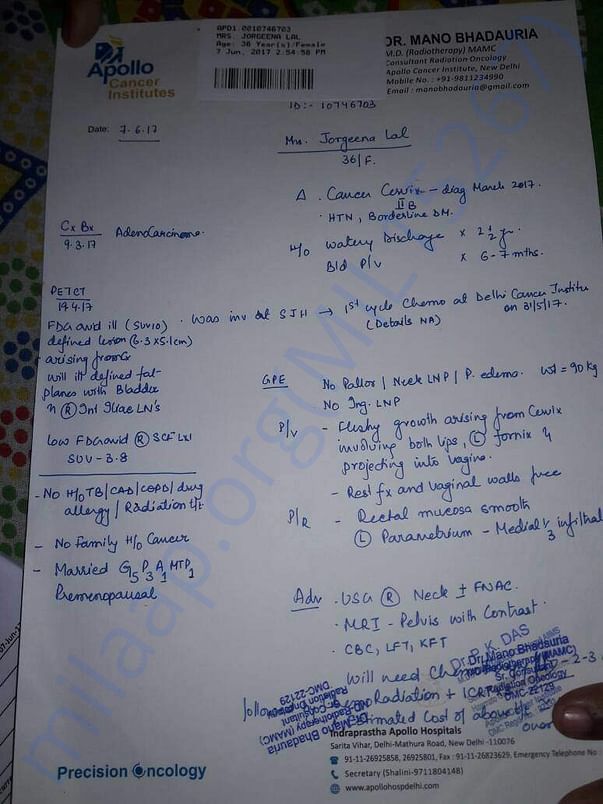 APD1.0010746703
MRS. JORGEENA LAL
Age: 36 Year(s)/Female
7 Jun, 2017 2:54:58 PM
Apollo
Cancer
Institutes
DR. MANO BHADAURIA
M.D. (Radiotherapy) MAMC
Consultant Radiation Oncology
Apollo Cancer Institute, New Delhi
Mobile No. : +91-9811234990
Email : manobhadauria@gmail.com
ID:- 10746703
Date: 7.6.17
Mrs. Jorgeena Lal
36/F.
Δ . Cancer Cervix – diag March 2017.
IIB
· HTN, Borderline DM.
Cx Bx
9.3.17 Adenocarcinoma.
H/o watery Discharge x 2 1/2 yr.
Bld P/V x 6-7 mths.
PETCT
19.4.17
FDG avid ill (SUV10)
defined lesion (6.3x5.1cm)
arising from Cx
will ill defined fat-
planes with Bladder
n (R) Int Iliac LN's
Low FDG avid (R) SCF LN
SUV - 3.8
. Was inv at SJH → 1st cycle Chemo at Delhi Cancer Institu
on 31/5/17.
(Details NA)
GPE No Pallor / Neck LNP / P. edema. wt = 90 kg
No Ing. LNP
P/V - Fleshy growth arising from Cervix
involving both lips, (L) fornix &
projecting into vagina.
- Rest fx and vaginal walls free
P/R - Rectal mucosa smooth
(L) Parametrium - Medial 1/3 infiltrat
- No H/o TB/CAD/COPD/drug
allergy / Radiation t/t.
- No Family H/o Cancer
- Married G5P3A1MTP1
Premenopausal
Adv . USG (R) Neck ± FNAC.
· MRI - Pelvis with Contrast.
· CBC, LFT, KFT
will need Chemo - 2-3
Radiation + ICRT
Estimated Cost of above
Dr. P. K. DAS
Dr. Mano Bhadauria
MD Radiotherapy (MAMC)
Sr. Consultant
Radiation Oncology
DMC-22129
Dr. Mano Bhadauria
MD Radiotherapy (MAMC)
Sr. Consultant
Radiation Oncology
DMC-22129
Indraprastha Apollo Hospitals
Sarita Vihar, Delhi-Mathura Road, New Delhi -110076
91-11-26925858, 26925801, Fax : 91-11-26823629, Emergency Telephone No
Secretary (Shalini-9711804148)
www.apollohospdelhi.com
Precision Oncology